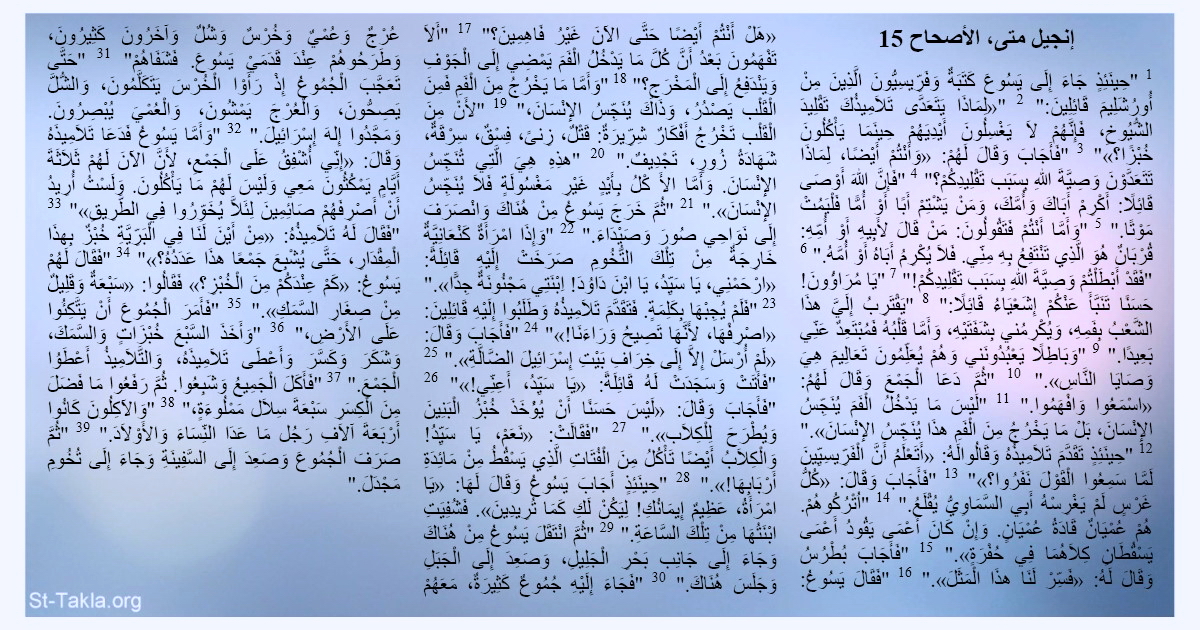 إنجيل متى، الأصحاح 15
1 "حِينَئِذٍ جَاءَ إِلَى يَسُوعَ كَتَبَةٌ وَفَرِّيسِيُّونَ الَّذِينَ مِنْ
أُورُشَلِيمَ قَائِلِينَ:" 2 "«لِمَاذَا يَتَعَدَّى تَلاَمِيذُكَ تَقْلِيدَ
الشُّيُوخِ، فَإِنَّهُمْ لاَ يَغْسِلُونَ أَيْدِيَهُمْ حِينَمَا يَأْكُلُونَ
خُبْزًا؟»" 3 "فَأَجَابَ وَقَالَ لَهُمْ: «وَأَنْتُمْ أَيْضًا، لِمَاذَا
تَتَعَدَّوْنَ وَصِيَّةَ اللهِ بِسَبَب تَقْلِيدِكُمْ؟" 4 "فَإِنَّ اللهَ أَوْصَى
قَائِلًا: أَكْرِمْ أَبَاكَ وَأُمَّكَ، وَمَنْ يَشْتِمْ أَبًا أَوْ أُمًّا فَلْيَمُتْ
مَوْتًا." 5 "وَأَمَّا أَنْتُمْ فَتَقُولُونَ: مَنْ قَالَ لأَبِيهِ أَوْ أُمِّهِ:
قُرْبَانٌ هُوَ الَّذِي تَنْتَفِعُ بِهِ مِنِّي. فَلاَ يُكْرِمُ أَبَاهُ أَوْ أُمَّهُ." 6
"فَقَدْ أَبْطَلْتُمْ وَصِيَّةَ اللهِ بِسَبَب تَقْلِيدِكُمْ!" 7 "يَا مُرَاؤُونَ!
حَسَنًا تَنَبَّأَ عَنْكُمْ إِشَعْيَاءُ قَائِلًا:" 8 "يَقْتَرِبُ إِلَيَّ هذَا
الشَّعْبُ بِفَمِهِ، وَيُكْرِمُني بِشَفَتَيْهِ، وَأَمَّا قَلْبُهُ فَمُبْتَعِدٌ عَنِّي
بَعِيدًا." 9 "وَبَاطِلًا يَعْبُدُونَني وَهُمْ يُعَلِّمُونَ تَعَالِيمَ هِيَ
وَصَايَا النَّاسِ»." 10 "ثُمَّ دَعَا الْجَمْعَ وَقَالَ لَهُمُ:
«اسْمَعُوا وَافْهَمُوا." 11 "لَيْسَ مَا يَدْخُلُ الْفَمَ يُنَجِّسُ
الإِنْسَانَ، بَلْ مَا يَخْرُجُ مِنَ الْفَمِ هذَا يُنَجِّسُ الإِنْسَانَ»."
12 "حِينَئِذٍ تَقَدَّمَ تَلاَمِيذُهُ وَقَالُوالَهُ: «أَتَعْلَمُ أَنَّ الْفَرِّيسِيِّينَ
لَمَّا سَمِعُوا الْقَوْلَ نَفَرُوا؟»" 13 "فَأَجَابَ وَقَالَ: «كُلُّ
غَرْسٍ لَمْ يَغْرِسْهُ أَبِي السَّمَاوِيُّ يُقْلَعُ." 14 "اُتْرُكُوهُمْ.
هُمْ عُمْيَانٌ قَادَةُ عُمْيَانٍ. وَإِنْ كَانَ أَعْمَى يَقُودُ أَعْمَى
يَسْقُطَانِ كِلاَهُمَا فِي حُفْرَةٍ»." 15 "فَأَجَابَ بُطْرُسُ
وَقَالَ لَهُ: «فَسِّرْ لَنَا هذَا الْمَثَلَ»." 16 "فَقَالَ يَسُوعُ:
«هَلْ أَنْتُمْ أَيْضًا حَتَّى الآنَ غَيْرُ فَاهِمِينَ؟" 17 "أَلاَ
تَفْهَمُونَ بَعْدُ أَنَّ كُلَّ مَا يَدْخُلُ الْفَمَ يَمْضِي إِلَى الْجَوْفِ
وَيَنْدَفِعُ إِلَى الْمَخْرَجِ؟" 18 "وَأَمَّا مَا يَخْرُجُ مِنَ الْفَمِ فَمِنَ
الْقَلْب يَصْدُرُ، وَذَاكَ يُنَجِّسُ الإِنْسَانَ،" 19 "لأَنْ مِنَ
الْقَلْب تَخْرُجُ أَفْكَارٌ شِرِّيرَةٌ: قَتْلٌ، زِنىً، فِسْقٌ، سِرْقَةٌ،
شَهَادَةُ زُورٍ، تَجْدِيفٌ." 20 "هذِهِ هِيَ الَّتِي تُنَجِّسُ
الإِنْسَانَ. وَأَمَّا الأَ كْلُ بِأَيْدٍ غَيْرِ مَغْسُولَةٍ فَلاَ يُنَجِّسُ
الإِنْسَانَ»." 21 "ثُمَّ خَرَجَ يَسُوعُ مِنْ هُنَاكَ وَانْصَرَفَ
إِلَى نَوَاحِي صُورَ وَصَيْدَاءَ." 22 "وَإِذَا امْرَأَةٌ كَنْعَانِيَّةٌ
خَارِجَةٌ مِنْ تِلْكَ التُّخُومِ صَرَخَتْ إِلَيْهِ قَائِلَةً:
«ارْحَمْنِي، يَا سَيِّدُ، يَا ابْنَ دَاوُدَ! اِبْنَتِي مَجْنُونَةٌ جِدًّا»."
23 "فَلَمْ يُجِبْهَا بِكَلِمَةٍ. فَتَقَدَّمَ تَلاَمِيذُهُ وَطَلَبُوا إِلَيْهِ قَائِلِينَ:
«اصْرِفْهَا، لأَنَّهَا تَصِيحُ وَرَاءَنَا!»" 24 "فَأَجَابَ وَقَالَ:
«لَمْ أُرْسَلْ إِلاَّ إِلَى خِرَافِ بَيْتِ إِسْرَائِيلَ الضَّالَّةِ»." 25
"فَأَتَتْ وَسَجَدَتْ لَهُ قَائِلَةً: «يَا سَيِّدُ، أَعِنِّي!»" 26
"فَأَجَابَ وَقَالَ: «لَيْسَ حَسَنًا أَنْ يُؤْخَذَ خُبْزُ الْبَنِينَ
وَيُطْرَحَ لِلْكِلاَب»." 27 "فَقَالَتْ: «نَعَمْ، يَا سَيِّدُ!
وَالْكِلاَبُ أَيْضًا تَأْكُلُ مِنَ الْفُتَاتِ الَّذِي يَسْقُطُ مِنْ مَائِدَةِ
أَرْبَابِهَا!»." 28 "حِينَئِذٍ أَجَابَ يَسُوعُ وَقَالَ لَهَا: «يَا
امْرَأَةُ، عَظِيمٌ إِيمَانُكِ! لِيَكُنْ لَكِ كَمَا تُرِيدِينَ». فَشُفِيَتِ
ابْنَتُهَا مِنْ تِلْكَ السَّاعَةِ." 29 "ثُمَّ انْتَقَلَ يَسُوعُ مِنْ هُنَاكَ
وَجَاءَ إِلَى جَانِب بَحْرِ الْجَلِيلِ، وَصَعِدَ إِلَى الْجَبَلِ
وَجَلَسَ هُنَاكَ." 30 "فَجَاءَ إِلَيْهِ جُمُوعٌ كَثِيرَةٌ، مَعَهُمْ
عُرْجٌ وَعُمْيٌ وَخُرْسٌ وَشُلٌّ وَآخَرُونَ كَثِيرُونَ،
وَطَرَحُوهُمْ عِنْدَ قَدَمَيْ يَسُوعَ. فَشَفَاهُمْ" 31 "حَتَّى
تَعَجَّبَ الْجُمُوعُ إِذْ رَأَوْا الْخُرْسَ يَتَكَلَّمُونَ، وَالشُّلَّ
يَصِحُّونَ، وَالْعُرْجَ يَمْشُونَ، وَالْعُمْيَ يُبْصِرُونَ.
وَمَجَّدُوا إِلهَ إِسْرَائِيلَ." 32 "وَأَمَّا يَسُوعُ فَدَعَا تَلاَمِيذَهُ
وَقَالَ: «إِنِّي أُشْفِقُ عَلَى الْجَمْعِ، لأَنَّ الآنَ لَهُمْ ثَلاَثَةَ
أَيَّامٍ يَمْكُثُونَ مَعِي وَلَيْسَ لَهُمْ مَا يَأْكُلُونَ. وَلَسْتُ أُرِيدُ
أَنْ أَصْرِفَهُمْ صَائِمِينَ لِئَلاَّ يُخَوِّرُوا فِي الطَّرِيقِ»" 33
"فَقَالَ لَهُ تَلاَمِيذُهُ: «مِنْ أَيْنَ لَنَا فِي الْبَرِّيَّةِ خُبْزٌ بِهذَا
الْمِقْدَارِ، حَتَّى يُشْبِعَ جَمْعًا هذَا عَدَدُهُ؟»" 34 "فَقَالَ لَهُمْ
يَسُوعُ: «كَمْ عِنْدَكُمْ مِنَ الْخُبْزِ؟» فَقَالُوا: «سَبْعَةٌ وَقَلِيلٌ
مِنْ صِغَارِ السَّمَكِ»." 35 "فَأَمَرَ الْجُمُوعَ أَنْ يَتَّكِئُوا
عَلَى الأَرْضِ،" 36 "وَأَخَذَ السَّبْعَ خُبْزَاتٍ وَالسَّمَكَ،
وَشَكَرَ وَكَسَّرَ وَأَعْطَى تَلاَمِيذَهُ، وَالتَّلاَمِيذُ أَعْطَوُا
الْجَمْعَ." 37 "فَأَكَلَ الْجَمِيعُ وَشَبِعُوا. ثُمَّ رَفَعُوا مَا فَضَلَ
مِنَ الْكِسَرِ سَبْعَةَ سِلاَل مَمْلُوءَةٍ،" 38 "وَالآكِلُونَ كَانُوا
أَرْبَعَةَ آلاَفِ رَجُل مَا عَدَا النِّسَاءَ وَالأَوْلاَدَ." 39 "ثُمَّ
صَرَفَ الْجُمُوعَ وَصَعِدَ إِلَى السَّفِينَةِ وَجَاءَ إِلَى تُخُومِ
مَجْدَلَ."
St-Takla.org